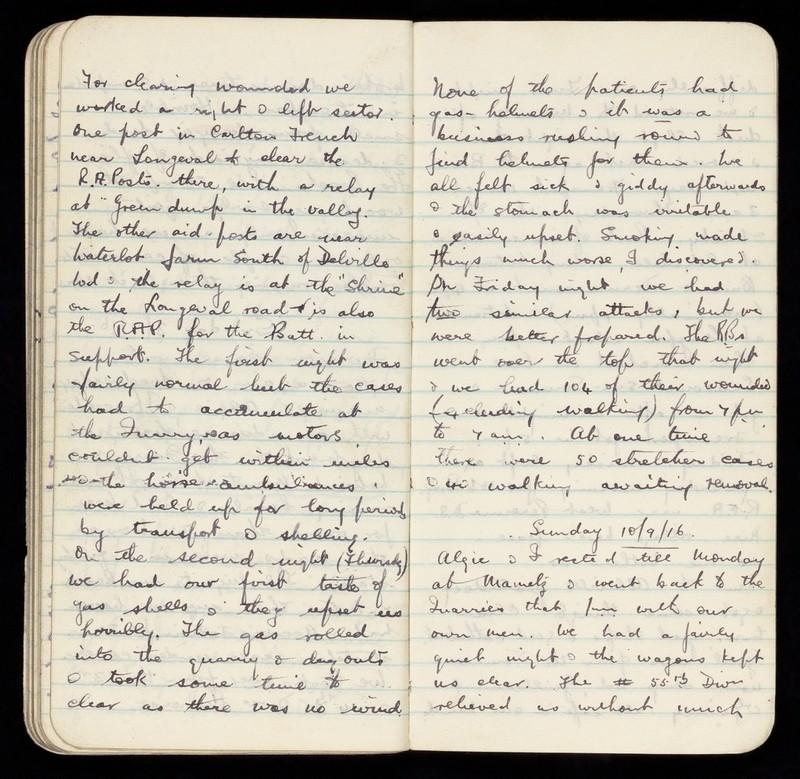 For clearing wounded we
worked a right & left sector.
One post in Carlton Trench
near Longeval to clear the
R.A. Posts there, with a relay
at "Green dump in the valley.
The other aid posts are near
Waterlot farm South of Delville
Wd & the relay is at the "Shrine"
on the Longeval road & is also
the R.A.P. for the Batt. in
support. The first night was
fairly normal but the cases
had to accumulate at
the Quarry, as motors
couldnt get within miles
& the horse ambulances
were held up for long periods
by transport & shelling.
On the second night (Thursday)
we had our first taste of
gas shells & they upset us
horribly. The gas rolled
into the quarry & dug outs
& took some time to
clear as there was no wind.
None of the patients had
gas-helmets & it was a
business rushing round to
find helmets for them. We
all felt sick & giddy afterwards
& the stomach was irritable
& easily upset. Smoking made
things much worse, I discovered.
On Friday night we had
two similar attacks, but we
were better prepared. The RBs
went over the top that night
& we had 104 of their wounded
(excluding walking) from 7 pm
to 7 am. At one time
there were 50 stretcher cases
& 40 walking awaiting removal.
Sunday 10/9/16.
Algie & I rested till Monday
at Mametz & went back to the
Quarries that pm with our
own men. We had a fairly
quiet night & the wagons kept
us clear. The 55th Divn
relieved us without much